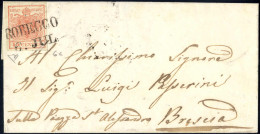 ROBECCO
JUL.
Al Chiarissimo Signore
Il Sig.r Luigi Paperini
Sulla Piazza St Alessandro Brescia